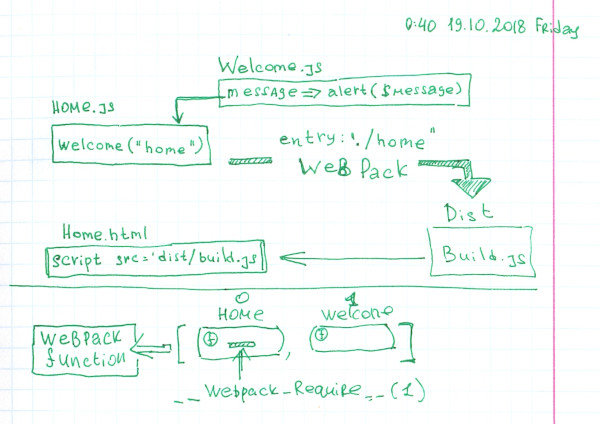 0:40 19.10.2018 Friday
Welcome.js
message => alert($message)
Home.js
Welcome("home")
entry: './home"
WeB Pack
Dist
Build.js
Home.html
script src='dist/build.js
0
Home
1
welcome
WeBPack
function
[ f , f ]
__Webpack_Require__(1)